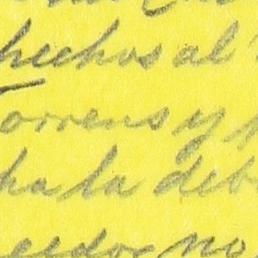 hechos al
Torrens y
ha la deb
eedor no